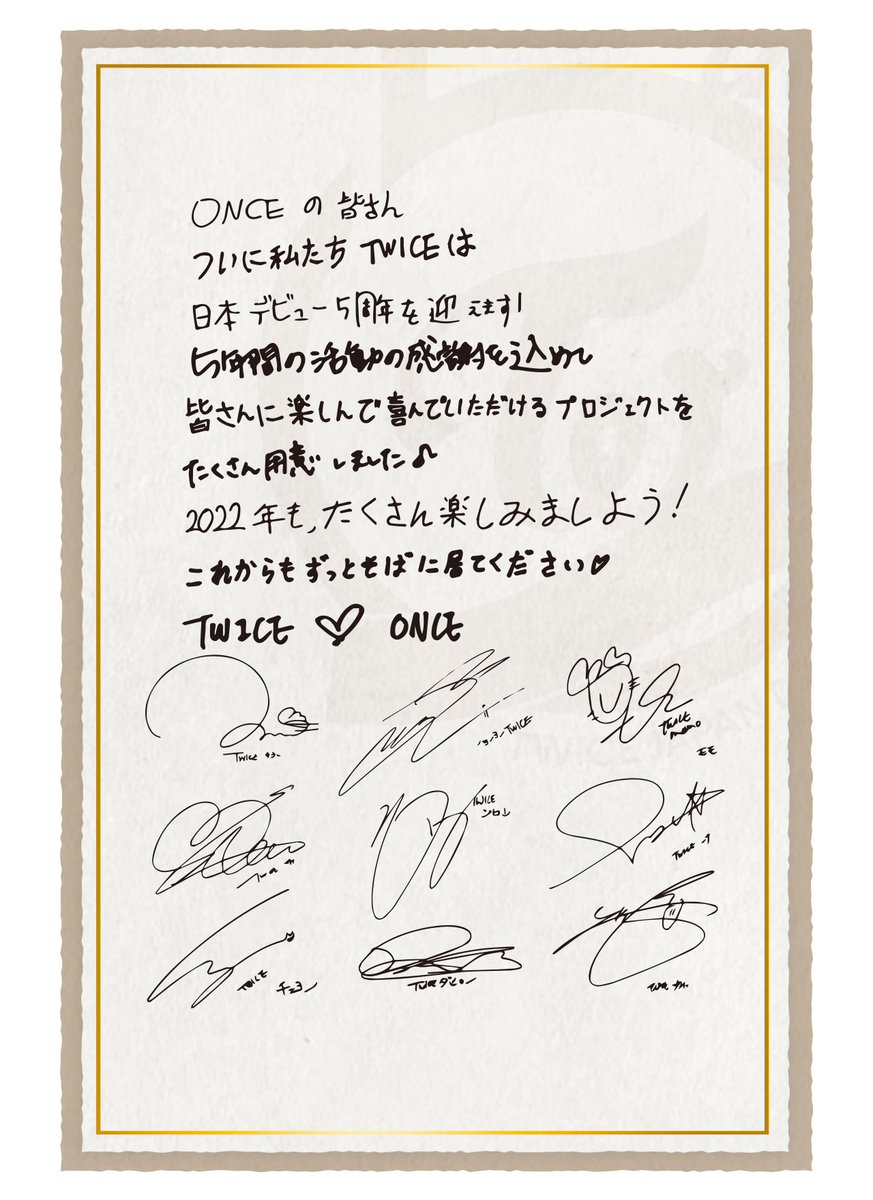 ONCE の 皆さん
ついに私たち TWICEは
日本デビュー5周年を迎えます!
5年間の活動の感謝を込めて
皆さんに楽しんで喜んでいただけるプロジェクトを
たくさん用意しました♪
2022年も,たくさん楽しみましょう!
これからもずっとそばに居てください♡
TWICE ♡ ONCE
TWICE
TWICE
TWICE
MOMO
モモ
TWICE
TWICE
TWICE
チェヨン
ダヒョン